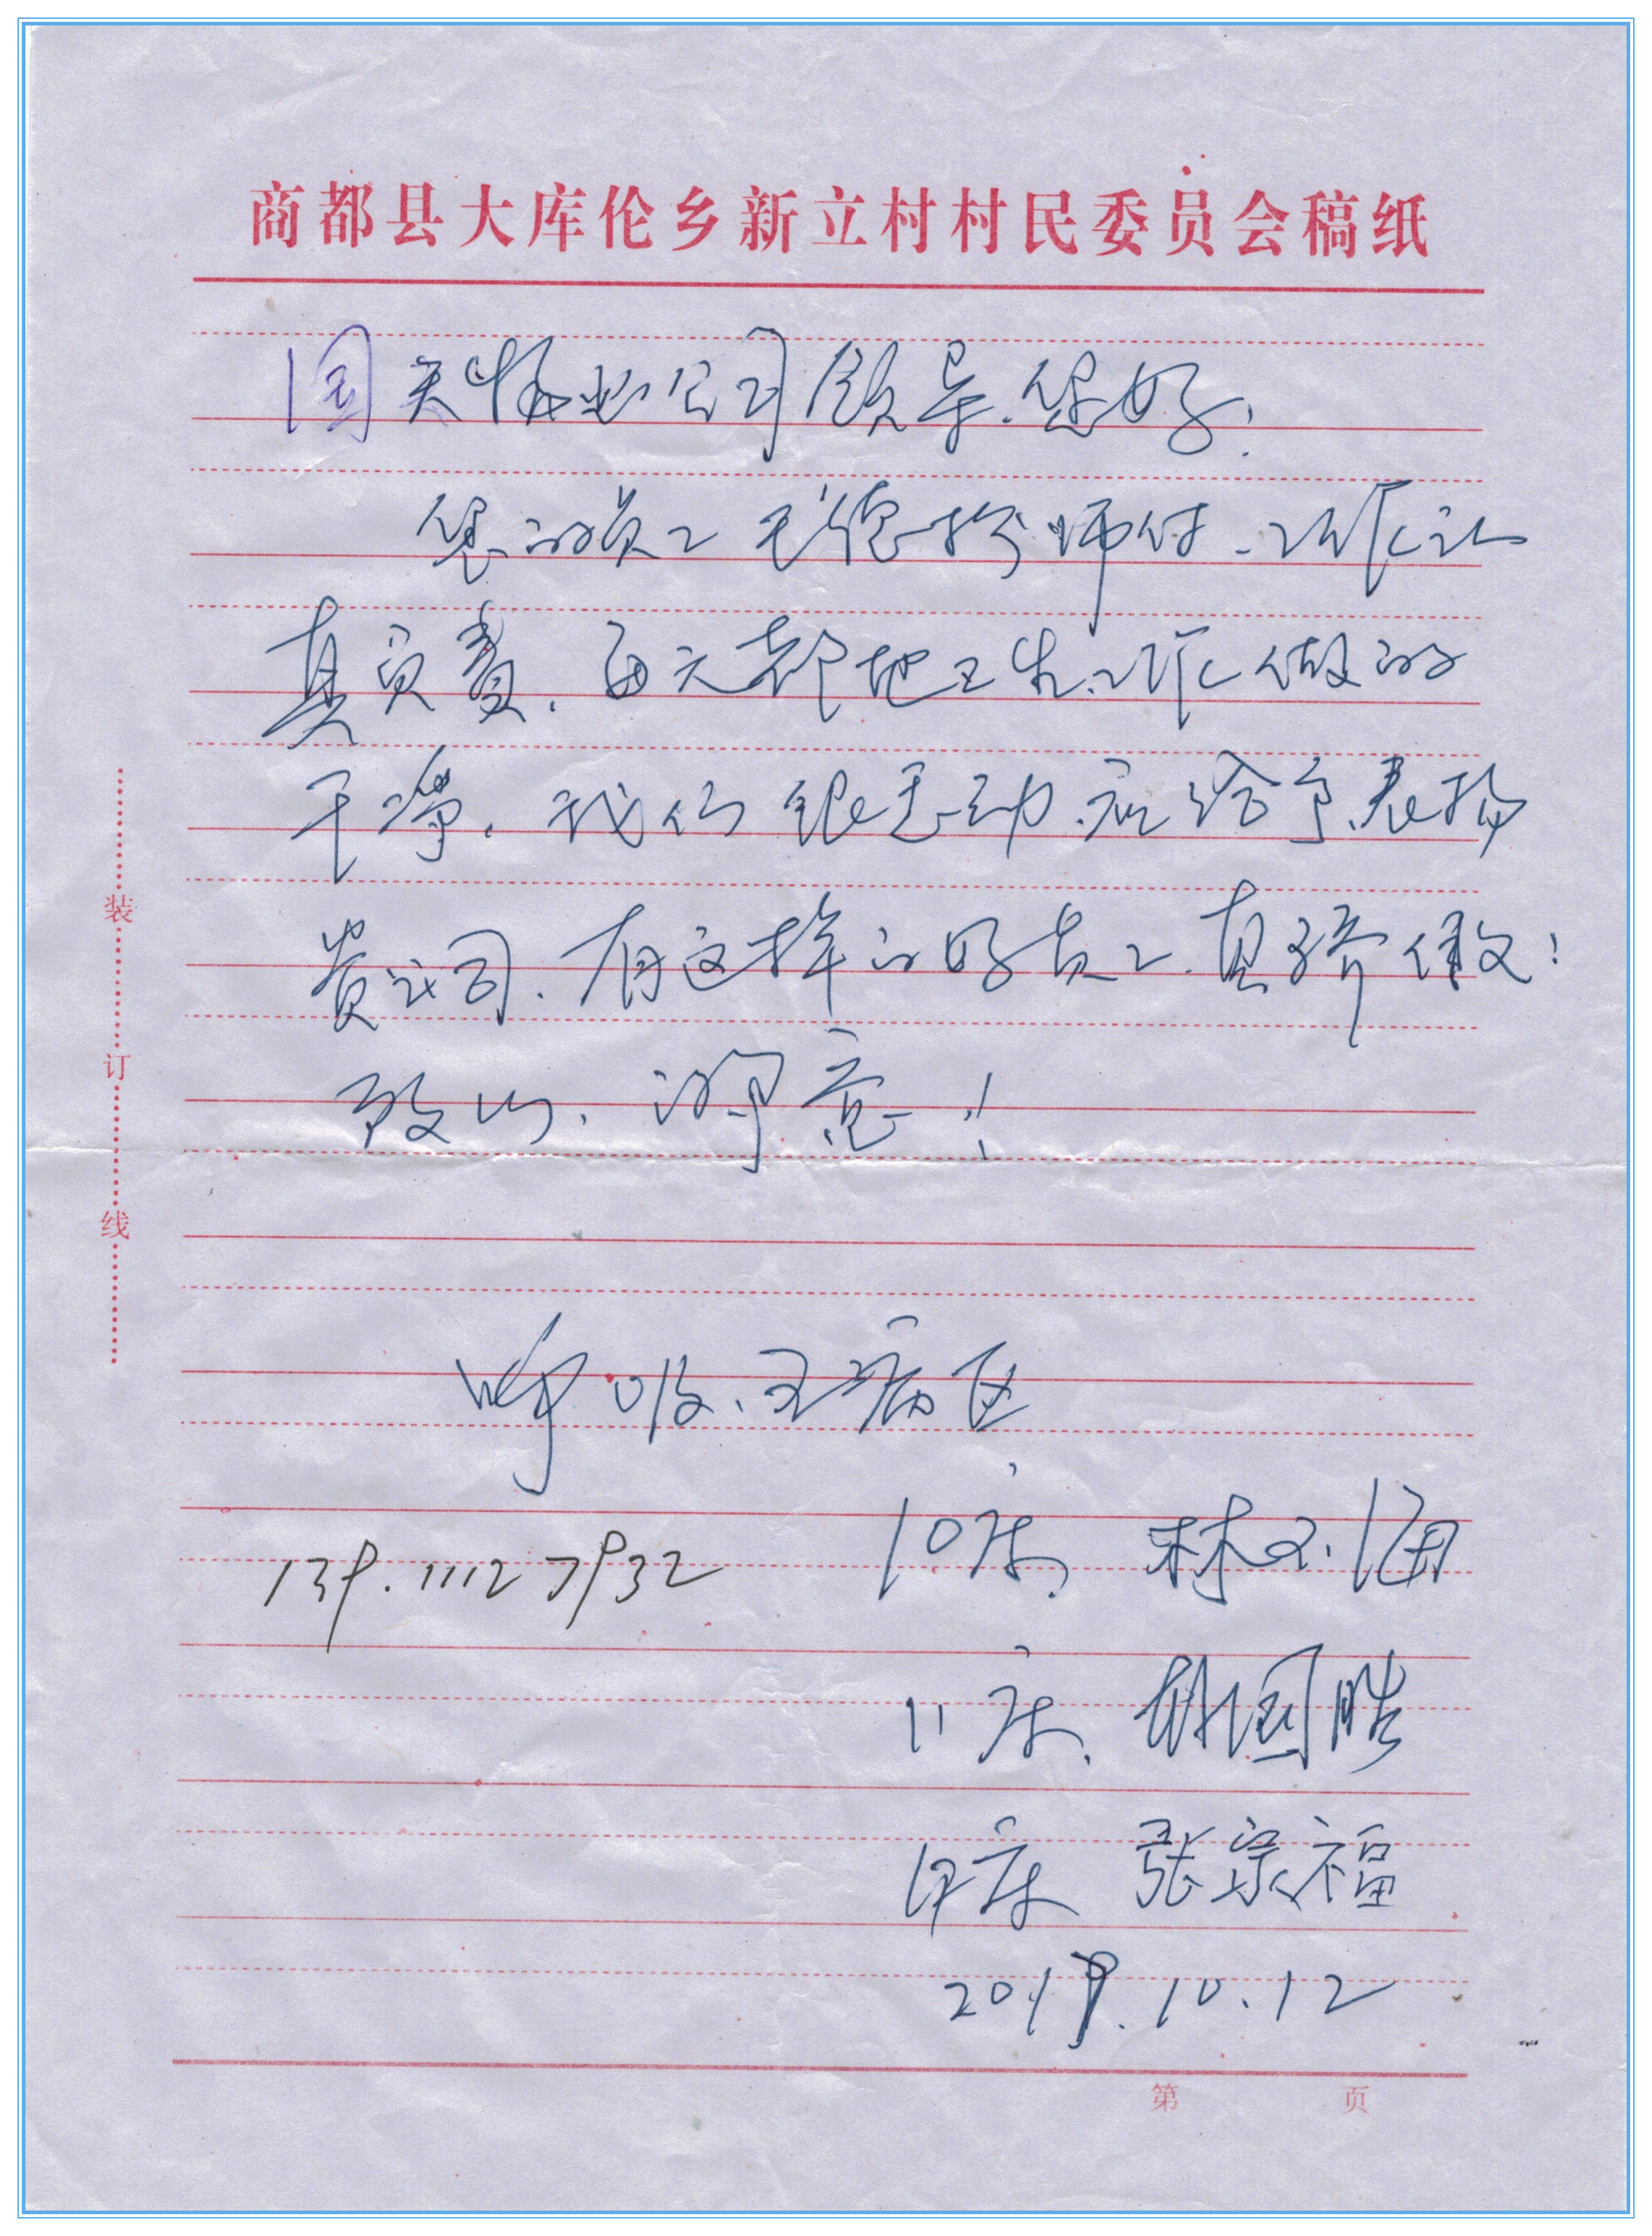 商都县大库伦乡新立村村民委员会稿纸
国天物业公司领导.您好!
您的员工 师付.工作认
真负责.每天都把卫生工作做的
干净.我们很感动.应给予表扬
贵公司.有这样的好员工.真骄傲!
致以.深意!
呼吸.五病区
10床. 林 海
139.11127932
11床. 胡国胜
床 张宗福
2019.10.12
装
订
线
第 页